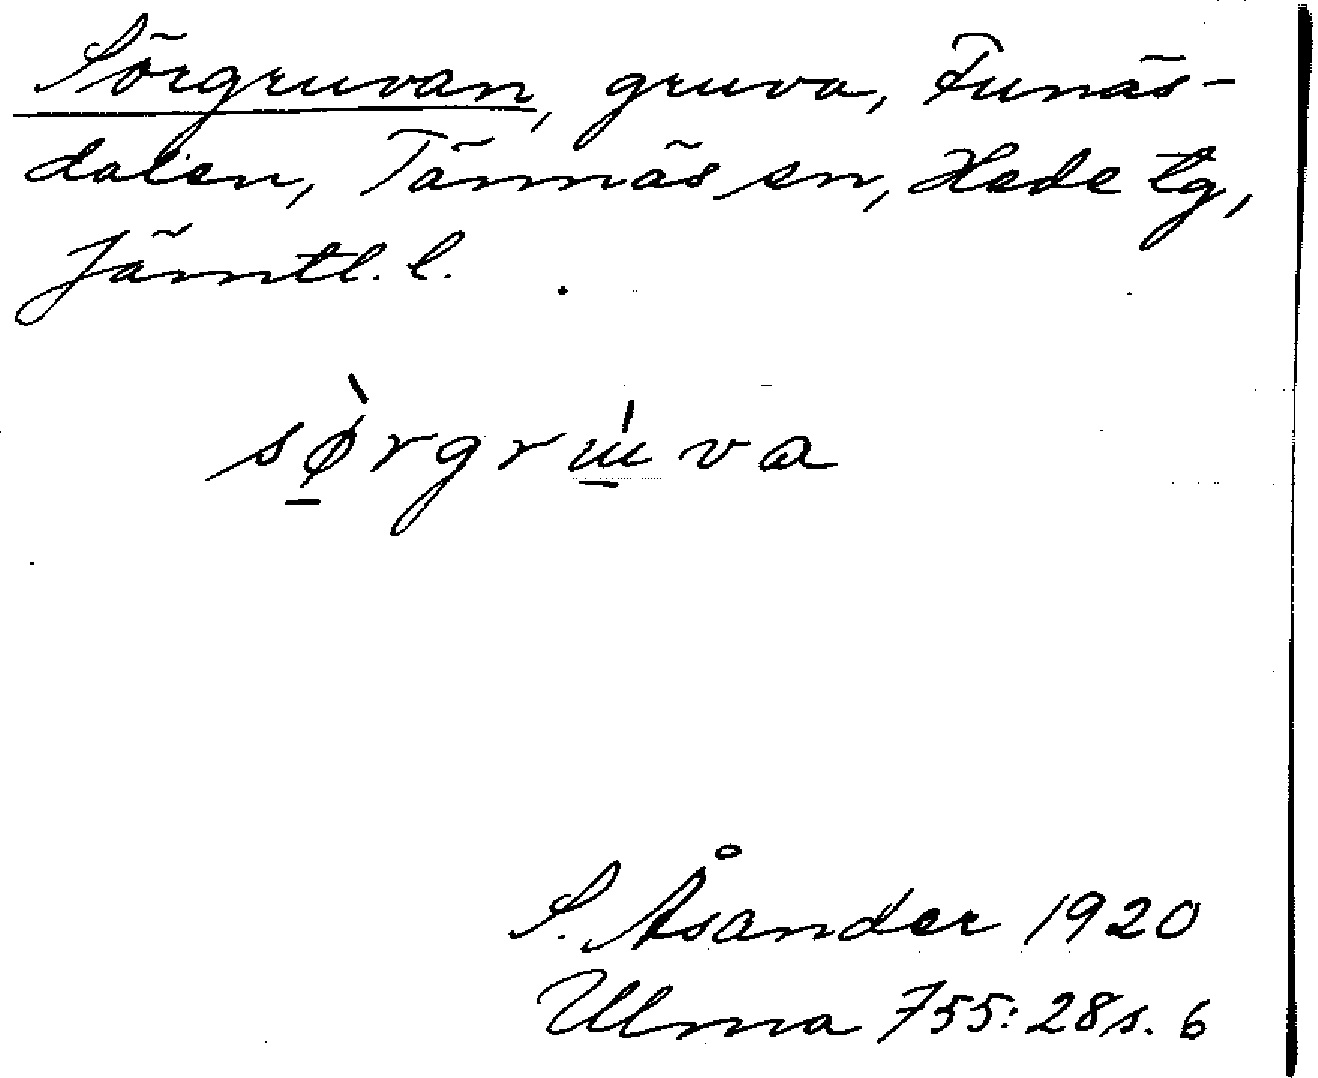 Sörgruvan, gruva, Funäs-
dalen, Tännäs sn, Hede tg,
Jämtl. l.
sø̀rgrɯ́va
S. Åsander 1920
Ulma 755:28 s. 6